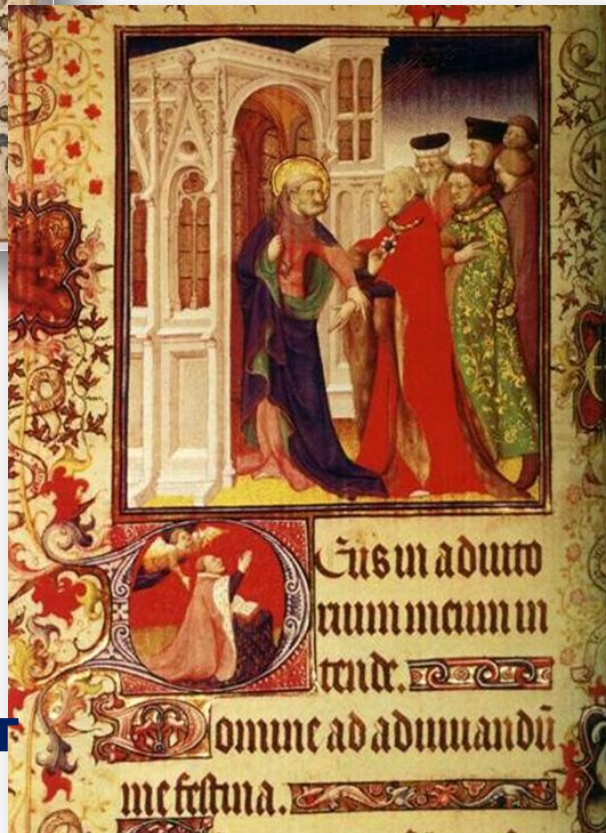 Deus in adiuto
rium meum in
tende.
T
Domine ad adiuuandū
me festina.